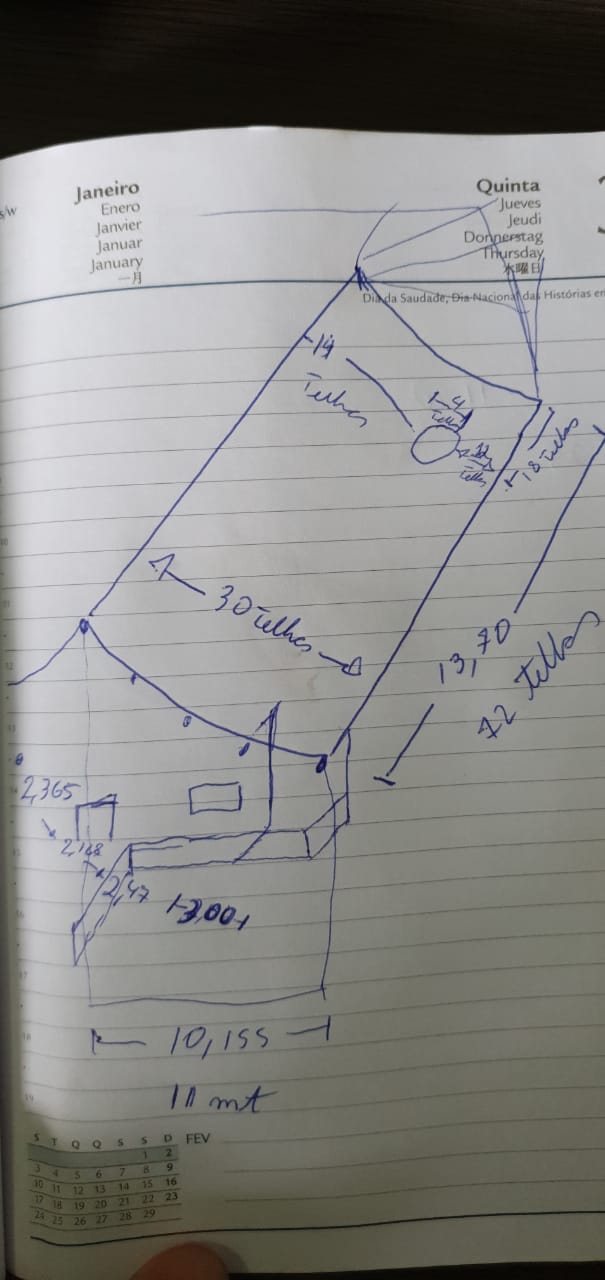 s/w
Janeiro
Enero
Janvier
Januar
January
一月
Quinta
Jueves
Jeudi
Donnerstag
Thursday
木曜日
3
Dia da Saudade, Dia Nacional das Histórias em
19
Telhas
4
Telhas
Telhas
18 Telhas
30 Telhas
13,70
72 telhas
2,365
2,168
2,47
3,00
10,155
11 mt
10
11
12
13
14
15
16
17
18
19
S T Q Q S S D FEV
1 2
3 4 5 6 7 8 9
10 11 12 13 14 15 16
17 18 19 20 21 22 23
24 25 26 27 28 29